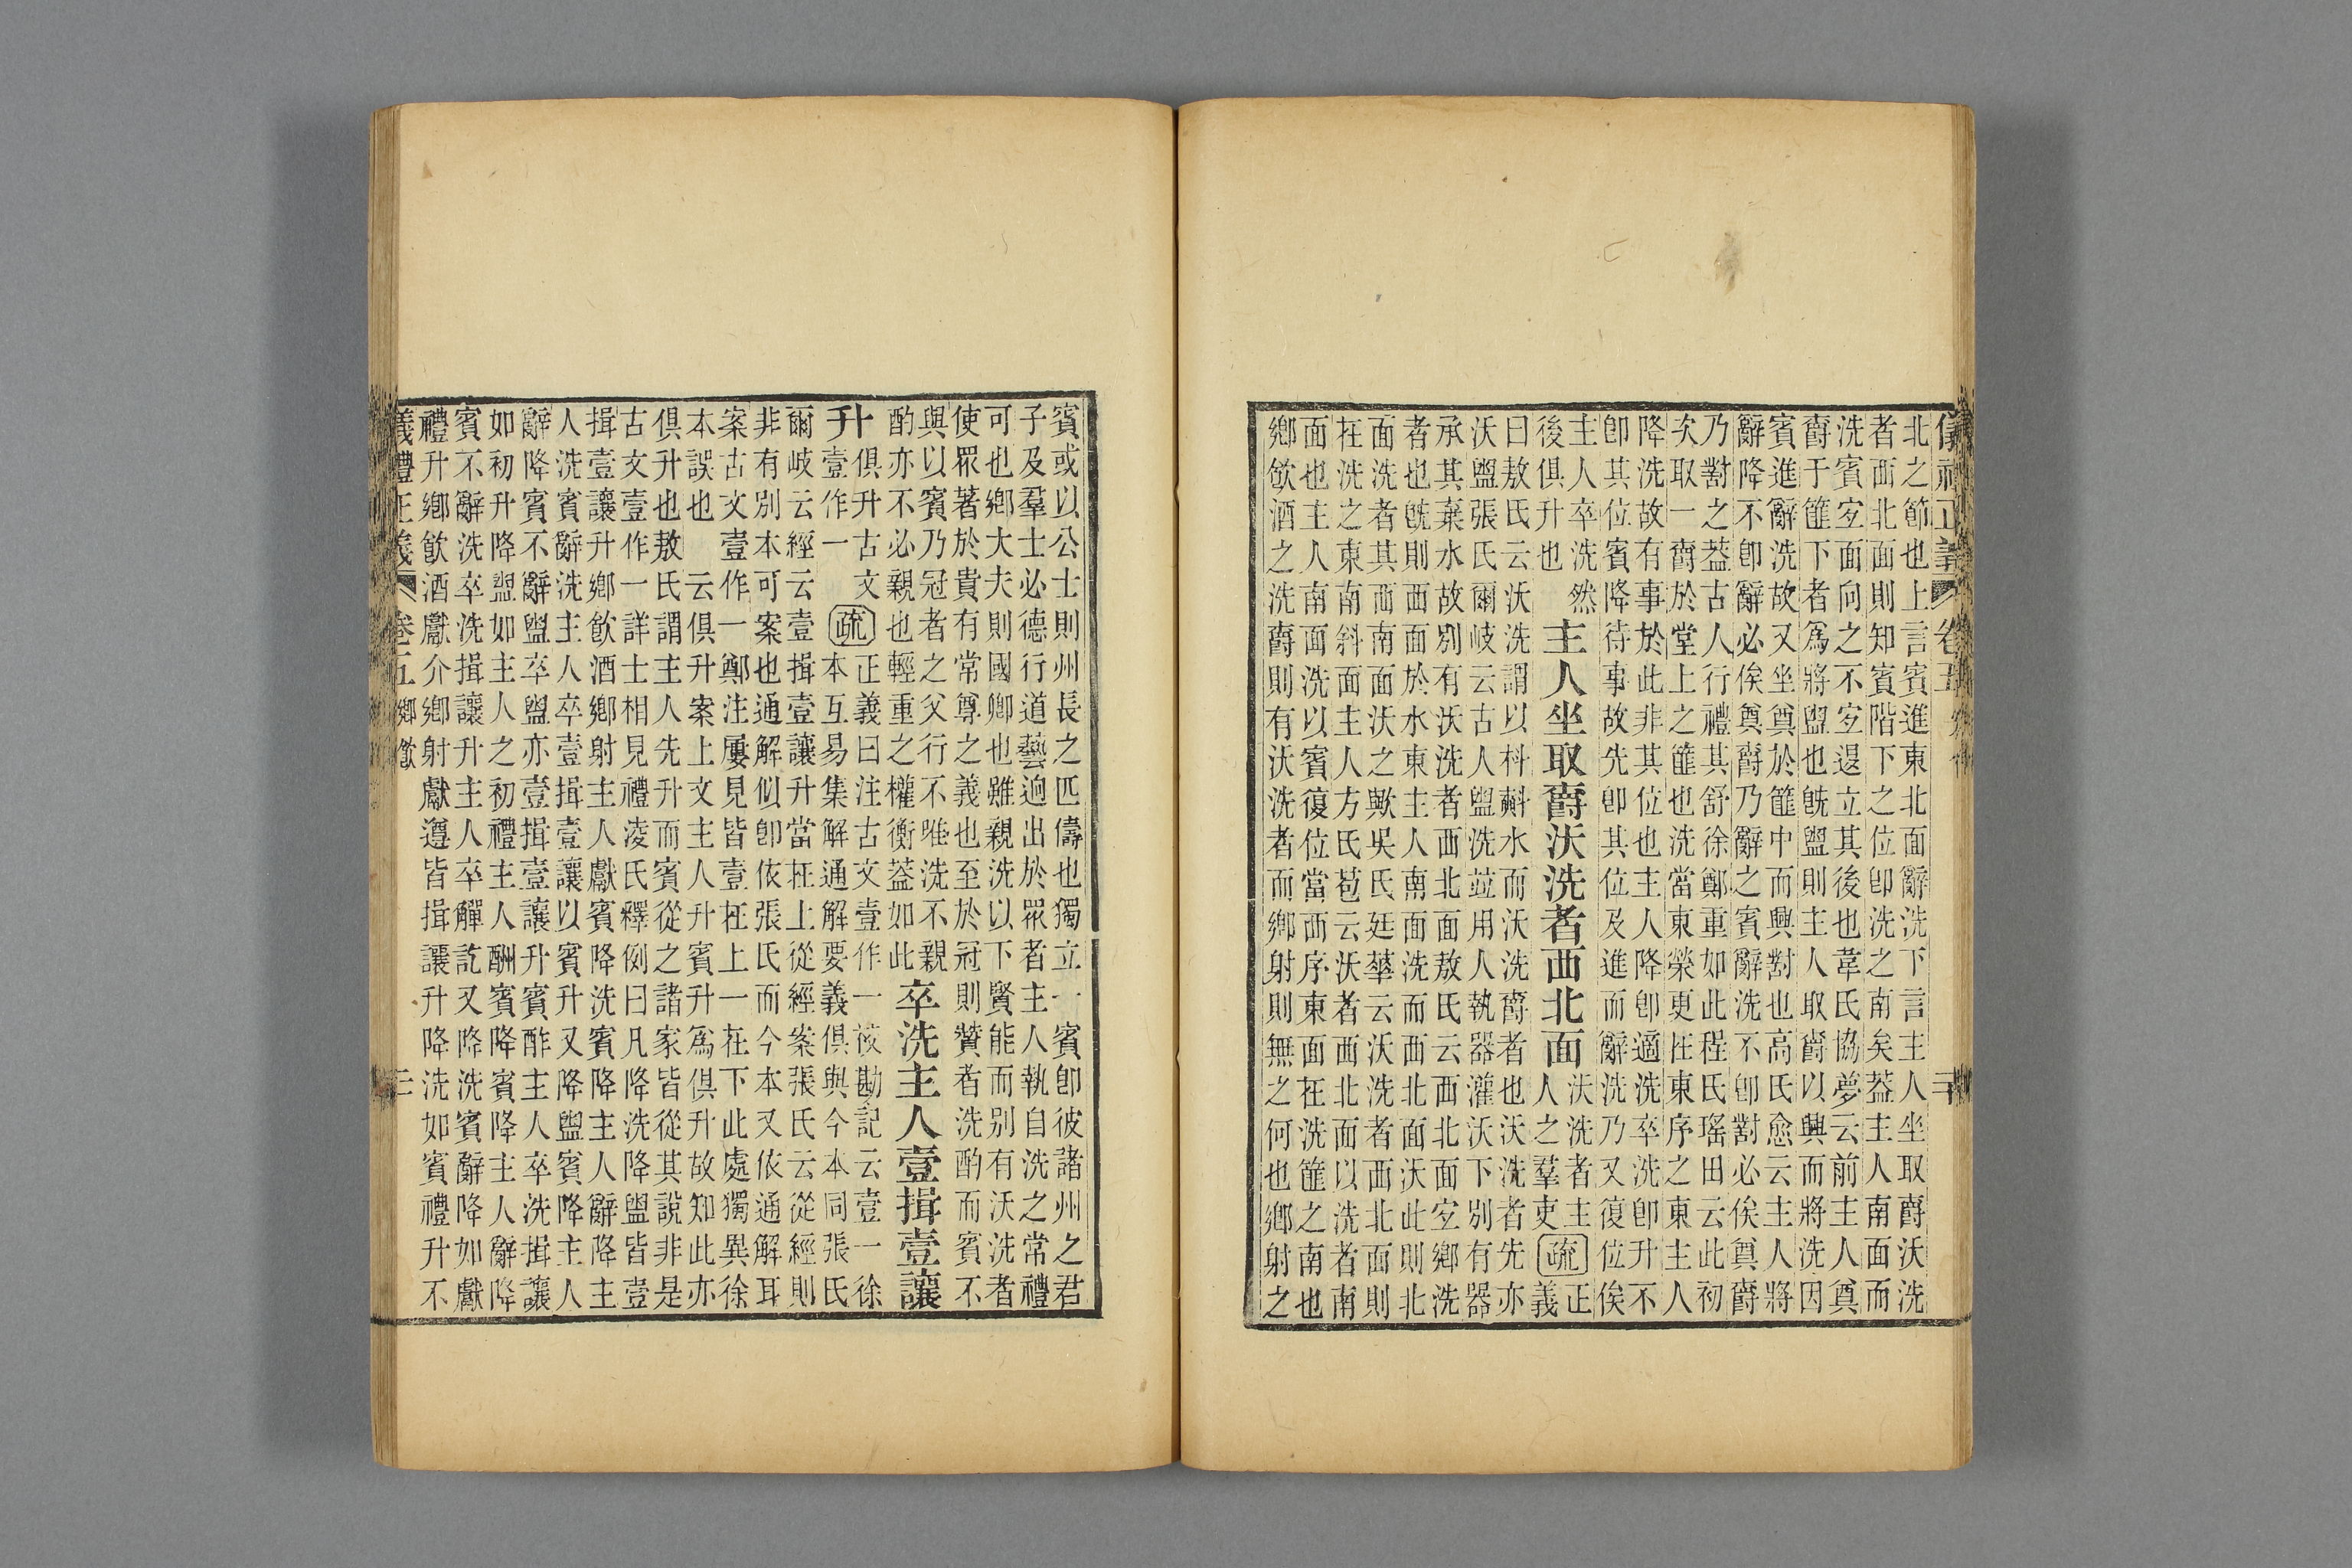 儀禮正義 卷五 三
北之節也上言賓進東北面辭洗下言主人坐取爵沃洗
者西北面則知賓階下之位卽洗之南矣葢主人南面而
洗賓宐面向之不宐退立其後也韋氏協夢云前主人奠
爵于篚下者爲將盥也旣盥則主人取爵以興而將洗因
賓進辭洗故又坐奠於篚中而興對也高氏愈云主人將
辭降不卽辭必俟奠爵乃辭之賓辭洗不卽對必俟奠爵
乃對之葢古人行禮其舒徐鄭重如此程氏瑤田云此初
次取一爵於堂上之篚也洗當東榮更在東序之東主人
降洗故有事於此非其位也主人降卽適洗卒洗卽升不
卽其位賓降待事故先卽其位及進而辭洗乃又復位俟
主人卒洗然
後俱升也
主人坐取爵沃洗者西北面
沃洗者主
人之羣吏
疏
正
義
曰敖氏云沃洗謂以枓㪺水而沃洗爵者也沃洗者先亦
沃盥張氏爾岐云古人盥洗並用人執器灌沃下別有器
承其棄水故別有沃洗者西北面敖氏云西北面宐鄉洗
者也旣則西面於水東主人南面洗而西北面沃此則北
面洗者其西南面沃之歟吳氏廷華云沃洗者西北面則
在洗之東南斜面主人方氏苞云沃者西北面以洗者南
面也主人南面洗以賓復位當西序東面在洗篚之南也
鄉飮酒之洗爵則有沃洗者而鄉射則無之何也鄉射之
賓或以公士則州長之匹儔也獨立一賓卽彼諸州之君
子及羣士必德行道藝迥出於眾者主人執自洗之常禮
可也鄉大夫則國卿也雖親洗以下賢能而別有沃洗者
使眾著於貴有常尊之義也至於冠則贊者洗酌而賓不
與以賓乃冠者之父行不唯洗不親
酌亦不必親也輕重之權衡葢如此
卒洗主人壹揖壹讓
升
俱升古文
壹作一
疏
正義曰注古文壹作一挍勘記云壹一徐
本互易集解通解要義俱與今本同張氏
爾岐云經云壹揖壹讓升當在上從經案張氏云從經則
非有別本可案也通解似卽依張氏而今本又依通解耳
案古文壹作一鄭注屢見皆壹在上一在下此處獨異徐
本誤也 云俱升案上文主人升賓升爲俱升故知此亦
俱升也敖氏謂主人先升而賓從之諸家皆從其說非是
古文壹作一詳士相見禮淩氏釋例曰凡降洗降盥皆壹
揖壹讓升鄉飮酒鄉射主人獻賓降洗賓降主人辭降主
人洗賓辭洗主人卒壹揖壹讓以賓升又降盥賓降主人
辭降賓不辭盥卒盥亦壹揖壹讓升賓酢主人卒洗揖讓
如初升降盥如主人之初禮主人酬賓降賓降主人辭降
賓不辭洗卒洗揖讓升主人卒觶訖又降洗賓辭降如獻
禮升鄉飮酒獻介鄉射獻遵皆揖讓升降洗如賓禮升不
義禮正義 卷五 鄉飮 三